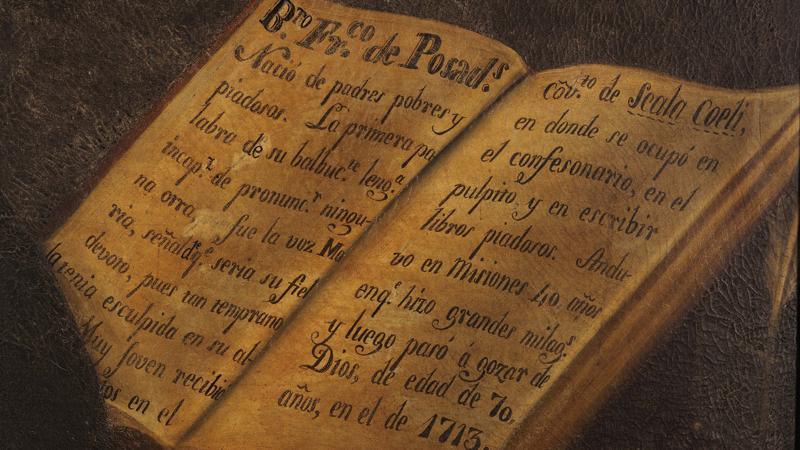 B.to Fr.co de Posad.s
Nació de padres pobres y
piadosos. La primera pa
labra de su balbuc.te leng.a
incap.z de pronunc.r ningu-
na otra, fue la voz Ma
ria, señal q.e seria su fiel
devoto, pues tan temprano
la tenia esculpida en su al-
Muy joven recibio
ios en el
Cōv.to de Scala Coeli,
en donde se ocupó en
el confesonario, en el
pulpito, y en escribir
libros piadosos. Andu-
vo en Misiones 40 años
enq.e hizo grandes milag.s
y luego pasó á gozar de
Dios, de edad de 70,
años, en el de 1713.